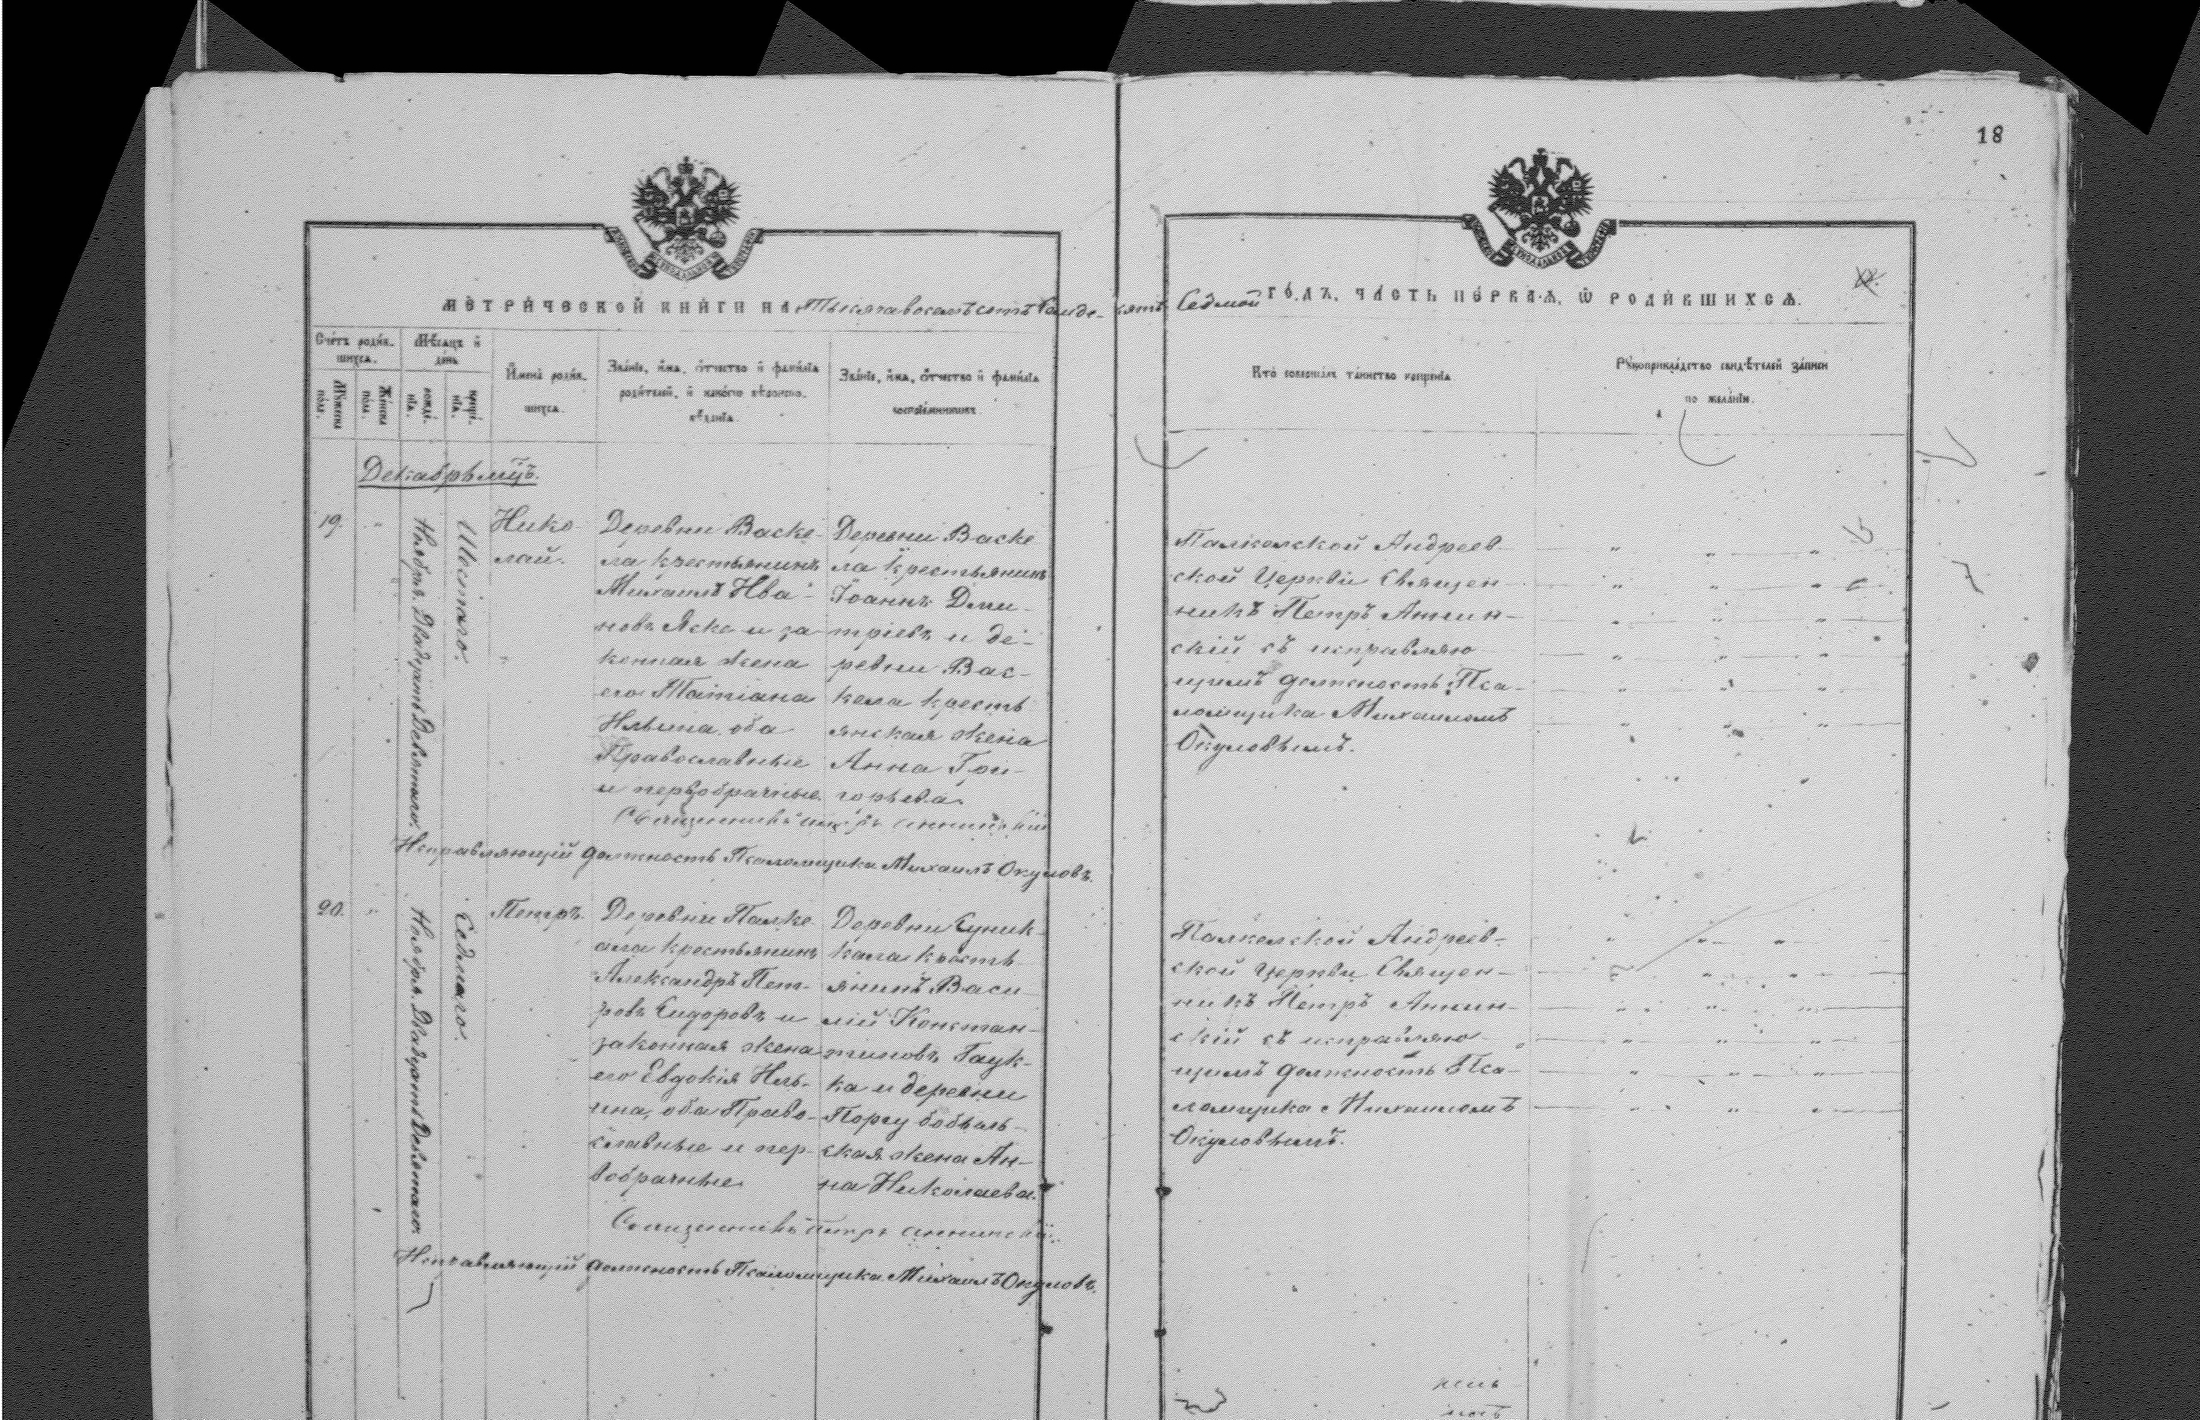 18
МЕТРИЧЕСКОЙ КНИГИ НА Тысяча восемьсотъ
сятъ Седмой ГОДЪ, ЧАСТЬ ПЕРВАЯ, Ѿ РОДИВШИХСЯ.
Счетъ родив-
шихся.
Мужеска
пола.
Женска
пола.
Мѣсяцъ и
день
рожде-
нія.
креще-
нія.
Имена родив-
шихся.
Званіе, имя, отчество и фамилія
родителей, и какого вѣроиспо-
вѣданія.
Званіе, имя, отчество и фамилія
воспріемниковъ.
Кто совершалъ таинство крещенія
Рукоприкладство свидѣтелей записи
по желанію.
Декабрь мцъ.
19.
Ноября Двадцать Девятаго.
Шестаго.
Нико-
лай.
Деревни Васке-
ла крестьянинъ
Михаилъ Ива-
новъ Яске и за-
конная жена
его Татіана
Ильина, оба
Православные
и первобрачные.
Деревни Васке
ла крестьянинъ
Іоаннъ Дми-
тріевъ и де-
ревни Вас-
кела кресть
янская жена
Анна Гри-
горьева.
Священникъ Петръ Аннинскій
Исправляющій должность Псаломщика Михаилъ Окуловъ.
Палкельской Андреев-
ской Церкви Священ-
никъ Петръ Аннин-
скій съ исправляю-
щимъ должность Пса-
ломщика Михаиломъ
Окуловымъ.
20.
Ноября Двадцать Девятаго.
Седмаго.
Петръ.
Деревни Палке-
ала крестьянинъ
Александръ Пет-
ровъ Сидоровъ и
законная жена
его Евдокія Иль-
ина, оба Право-
славные и пер-
вобрачные.
Деревни Суник-
кала кресть-
янинъ Васи-
лій Констан-
тиновъ Гаук-
ка и деревни
бобыль-
ская жена Ан-
на Николаева.
Священникъ Петръ Аннинскій.
Исправляющій должность Псаломщика Михаилъ Окуловъ.
Палкельской Андреев-
ской Церкви Священ-
никъ Петръ Аннин-
скій съ исправляю-
щимъ должность Пса-
ломщика Михаиломъ
Окуловымъ.